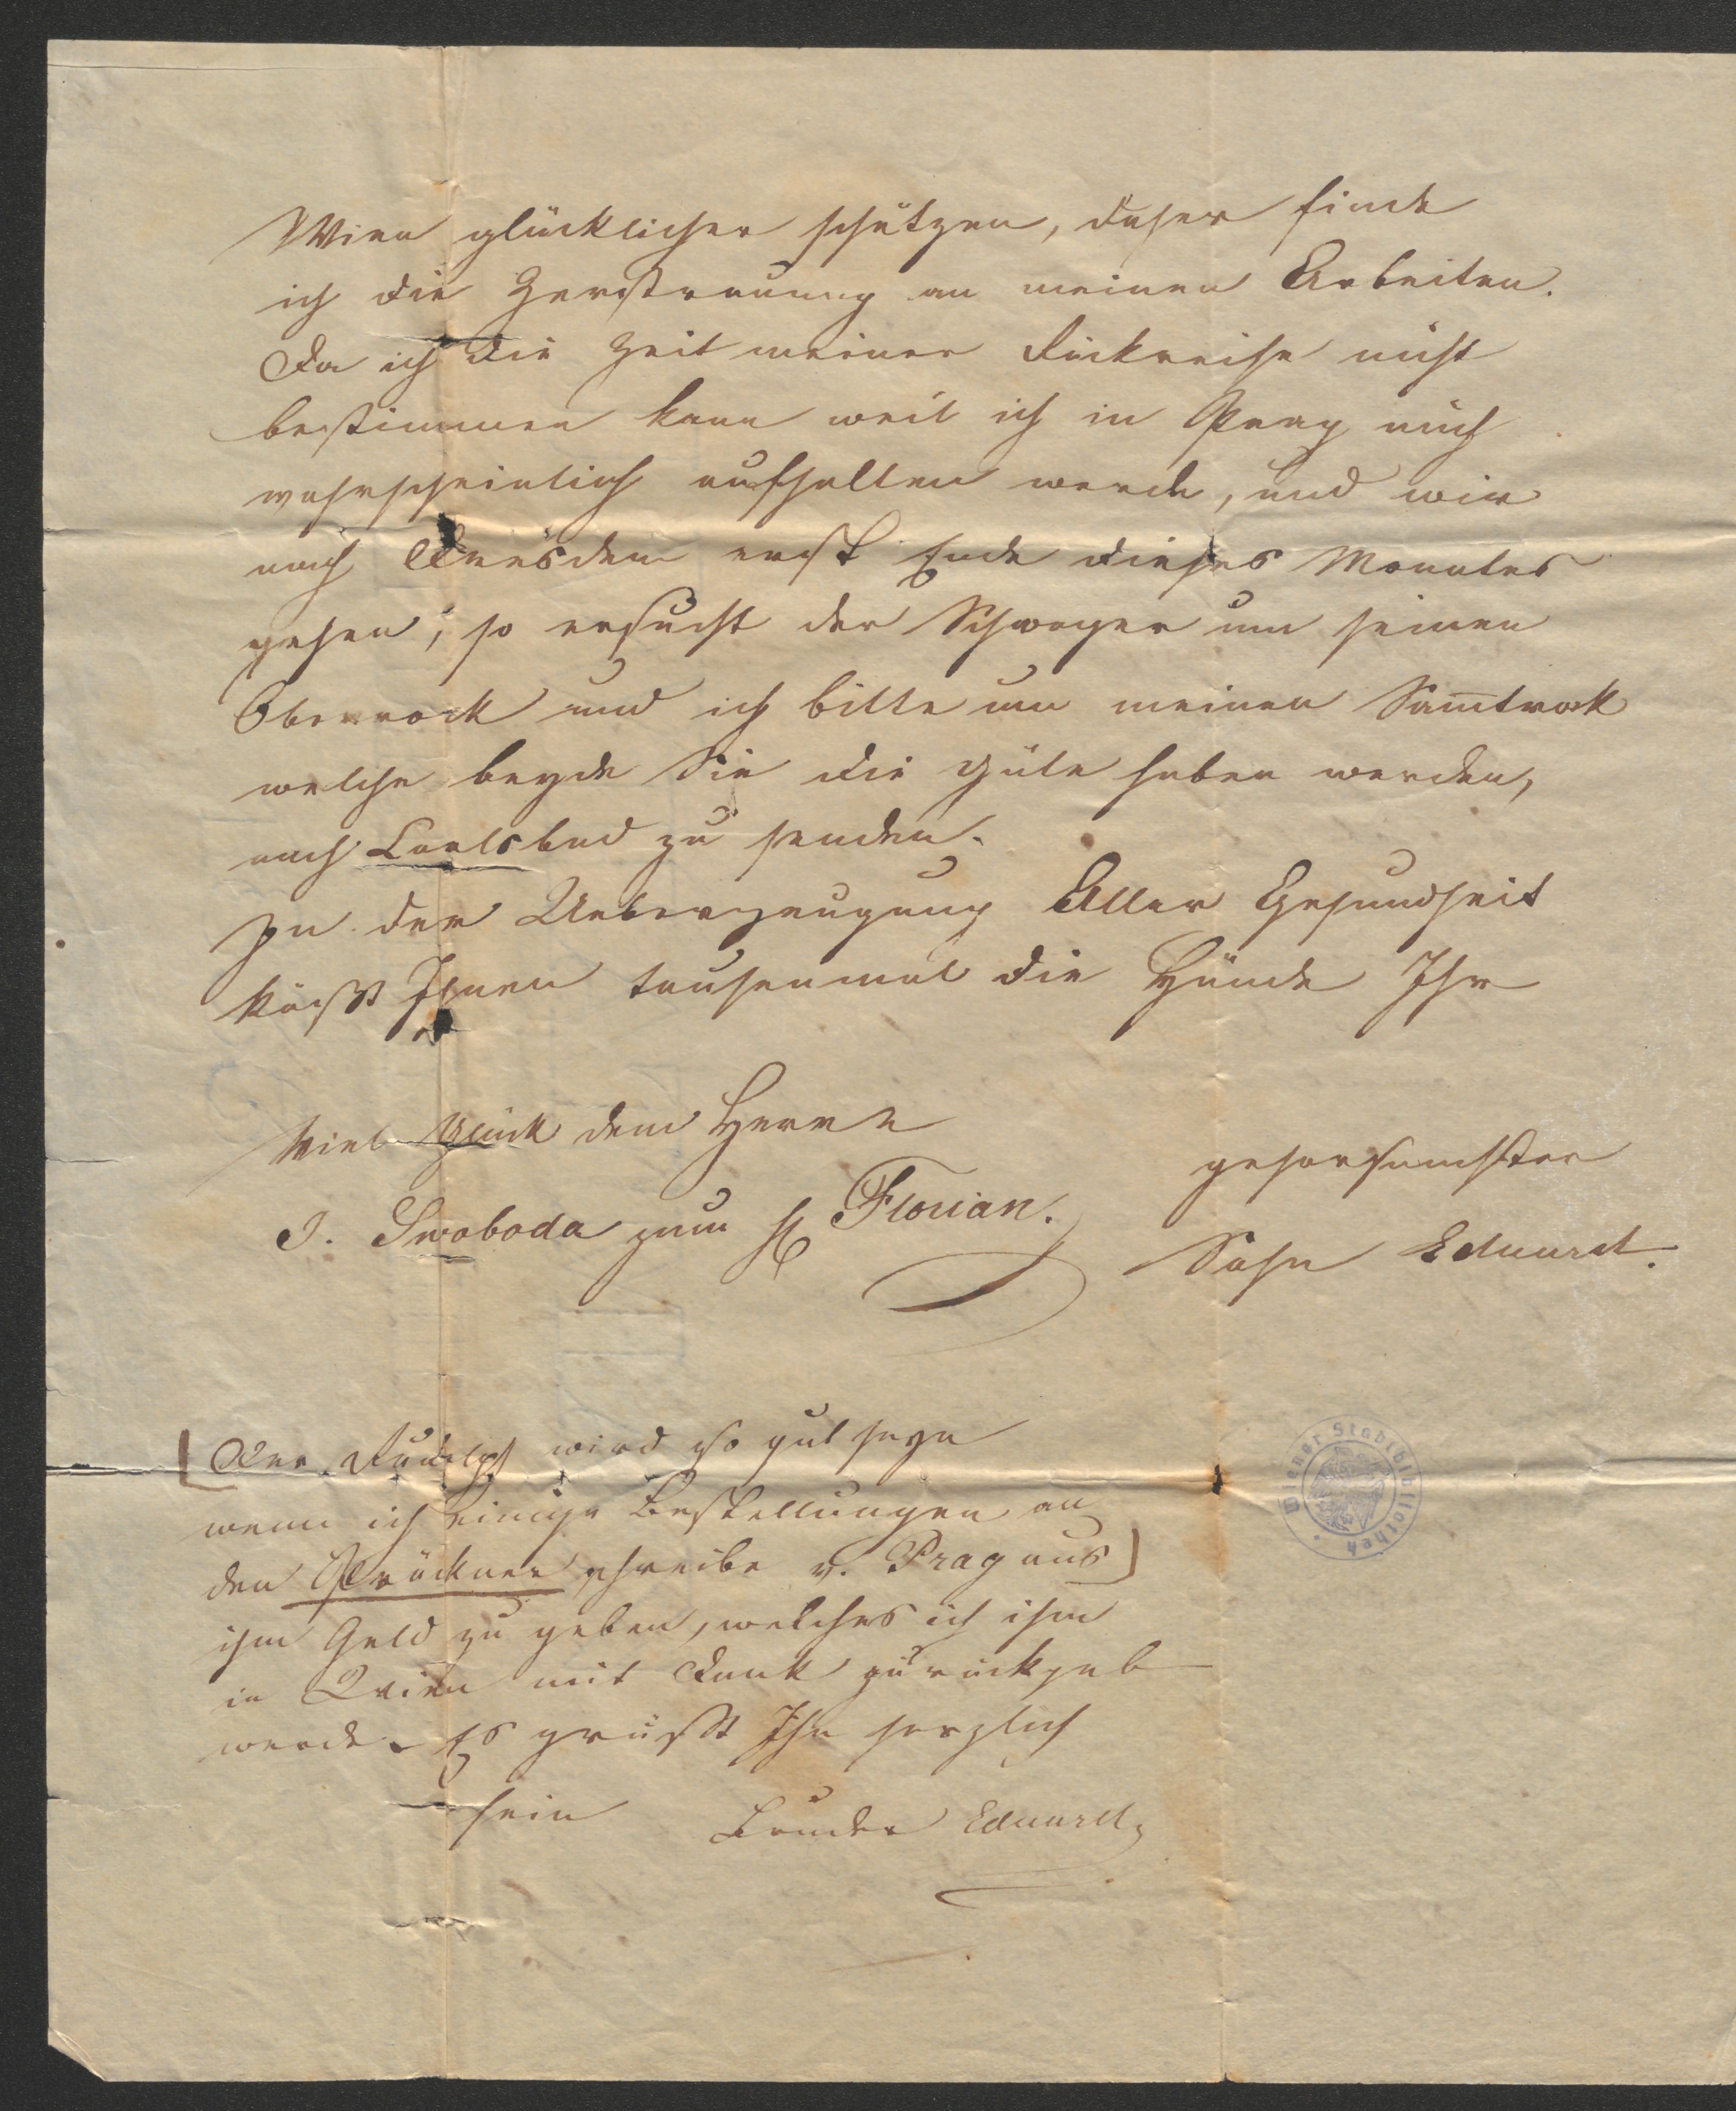 Wien glücklicher schätzen, daher finde
ich die Zerstreuung an meinen Arbeiten.
Da ich die Zeit meiner Rückreise nicht
bestimmen kann weil ich in Prag mich
wahrscheinlich aufhalten werde, und wir
nach Dresden erst Ende dieses Monates
gehen, so ersucht der Schwager um seinen
Oberrock und ich bitte um meinen Samtrock
welche beyde Sie die Güte haben werden,
nach Carlsbad zu senden.
In der Ueberzeugung Aller Gesundheit
küßt Ihnen tausenmal die Hände Ihr
gehorsamster
Sohn Eduard.
Viel Glück dem Herrn
J. Swoboda zum Florian.
Der Rudolph wird so gut seyn
wenn ich einige Bestellungen an
den schreibe v. Prag aus
ihm Geld zu geben, welches ich ihm
in Wien mit Dank zurückgeb
werde. Es grüßt Ihn herzlich
sein Bruder Eduard
Wiener Stadtbibliothek